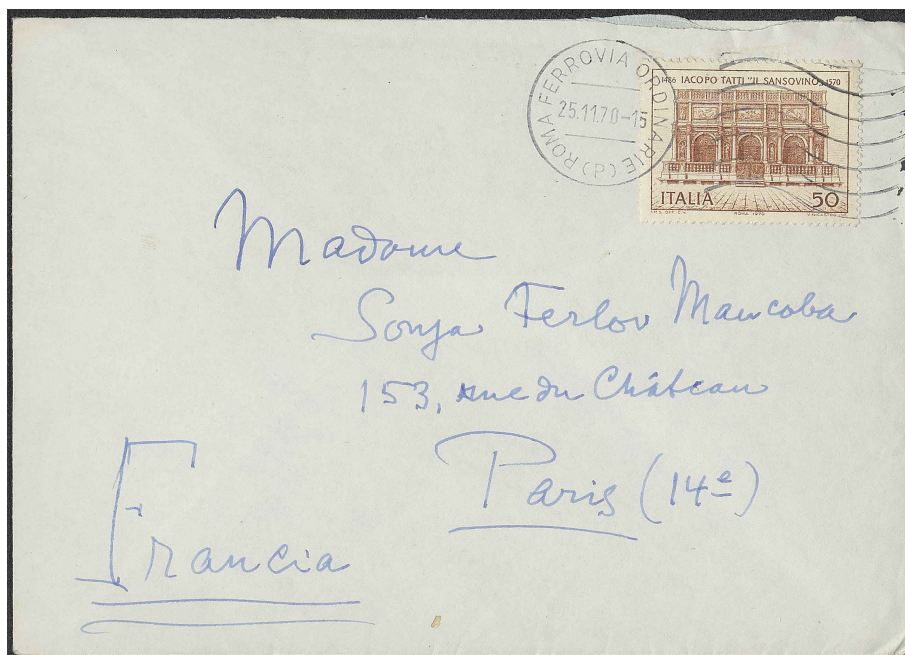 ROMA FERROVIA ORDINARIE (P)
25.11.70-15
1486 IACOPO TATTI "IL SANSOVINO" 1570
ITALIA 50
ROMA 1970
Madame
Sonja Ferlov Mancoba
153, rue du Château
Paris (14e)
Francia